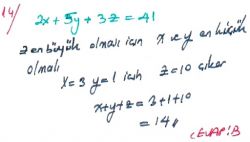 14/ 2x + 5y + 3z = 41
z en büyük olması için x ve y en küçük
olmalı
x=3 y=1 için z=10 çıkar
x+y+z = 3+1+10
= 14//
CEVAP: B